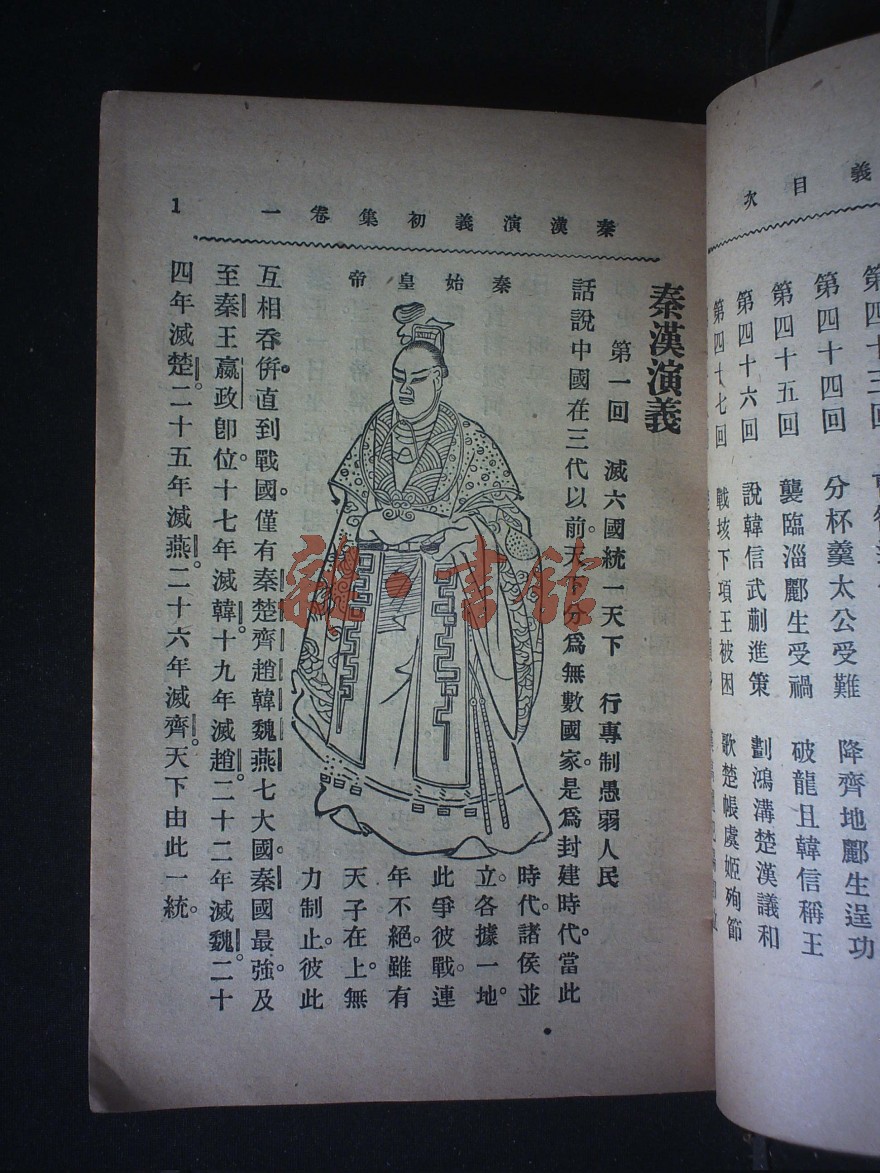 義目次
第四十三回
第四十四回 分杯羹太公受難 降齊地酈生逞功
第四十五回 襲臨淄酈生受禍 破龍且韓信稱王
第四十六回 說韓信武蒯進策 劃鴻溝楚漢議和
第四十七回 戰垓下項王被困 歌楚帳虞姬殉節
秦漢演義初集卷一
1
秦漢演義
第一回 滅六國統一天下 行專制愚弱人民
話說中國在三代以前。天下分爲無數國家。是爲封建時代。當此
秦始皇帝
時代。諸侯並
立。各據一地。
此爭彼戰。連
年不絕。雖有
天子在上。無
力制止。彼此
互相吞併。直到戰國。僅有秦楚齊趙韓魏燕七大國。秦國最強。及
至秦王嬴政卽位。十七年滅韓。十九年滅趙。二十二年滅魏。二十
四年滅楚。二十五年滅燕。二十六年滅齊。天下由此一統。
雜·書館